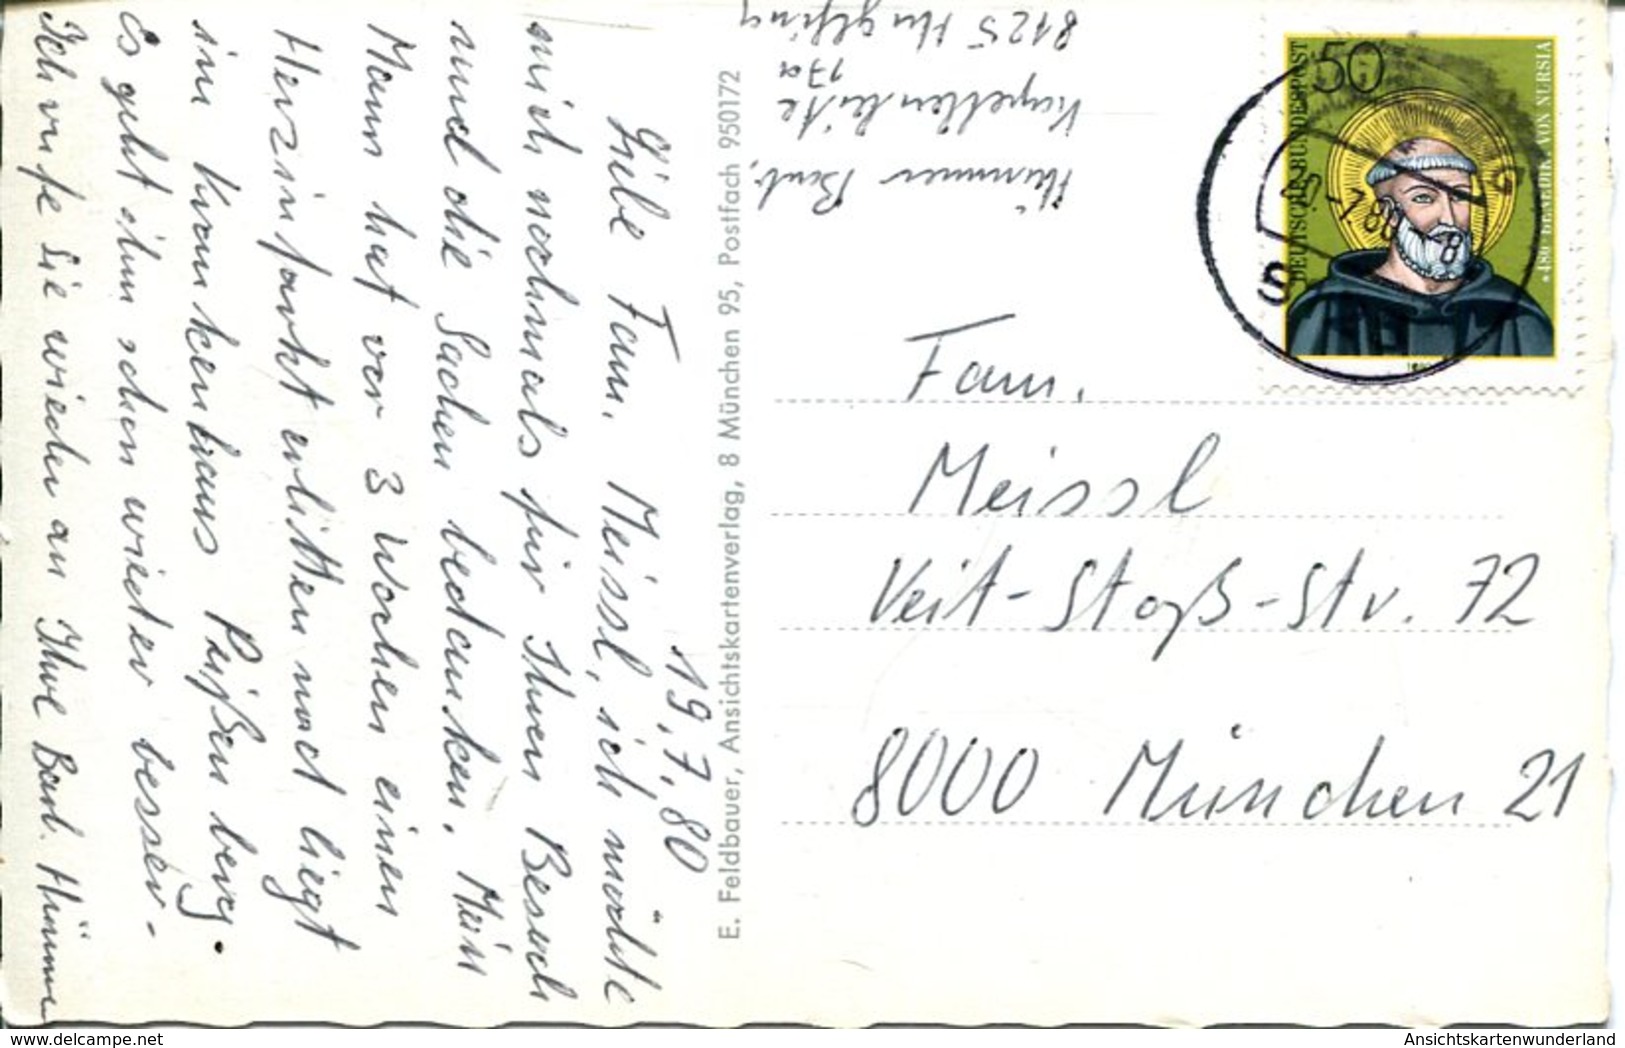 19.7.80
Liebe Fam. Meissl, ich möchte
mich nochmals für Ihren Besuch
und die Sachen bedanken. Mein
Mann hat vor 3 Wochen einen
Herzinfarkt erlitten und liegt
im Krankenhaus Peißenberg.
Es geht ihm schon wieder besser.
Ich rufe Sie wieder an Ihre Barb. Hümmer
E. Feldbauer, Ansichtskartenverlag, 8 München 95, Postfach 950172
Hümmer Barb.
Kapellenleite
17a
8125 Huglfing
Fam.
Meissl
Veit-Stoß-Str. 72
8000 München 21
50
DEUTSCHE BUNDESPOST
*480 BENEDIKT VON NURSIA
1980
delcampe.net
Ansichtskartenwunderland